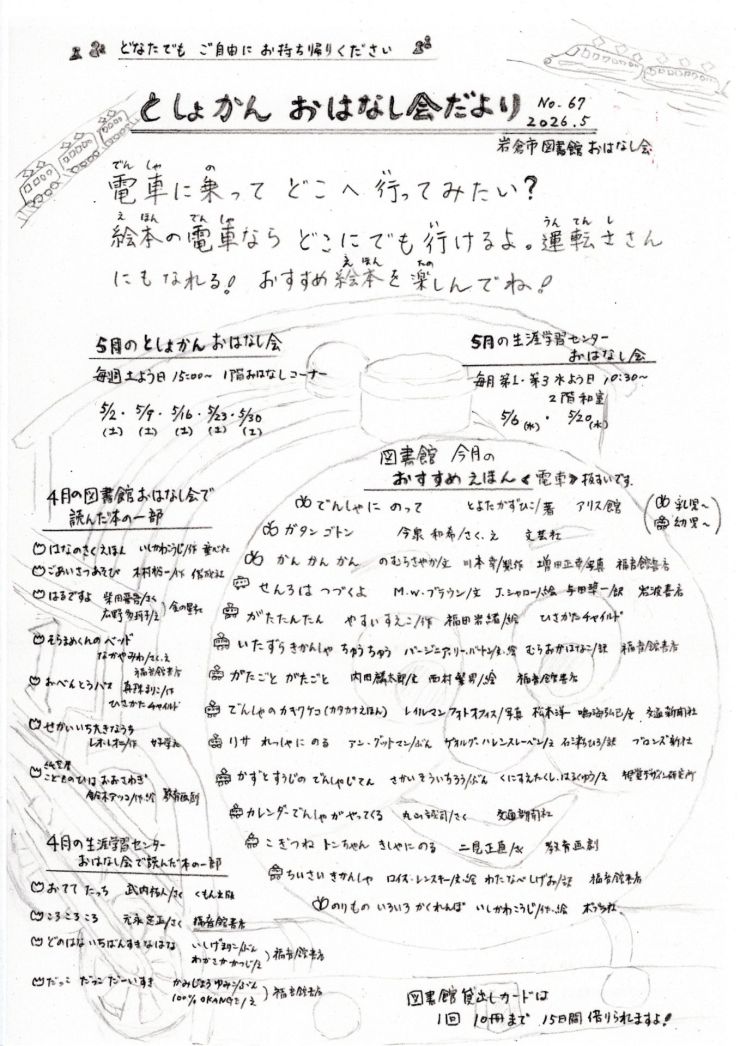 どなたでも ご自由に お持ち帰りください
としょかん おはなし会だより No.67
2026.5
岩倉市図書館 おはなし会
電車に乗って どこへ 行ってみたい?
絵本の電車なら どこにでも行けるよ。運転ささん
にもなれる! おすすめ絵本を楽しんでね!
5月のとしょかん おはなし会
毎週土よう日 15:00~ 1階おはなしコーナー
5/2・5/9・5/16・5/23・5/30
(土) (土) (土) (土) (土)
5月の生涯学習センター
おはなし会
毎月 第1・第3 水よう日 10:30~
2階 和室
5/6(水)・5/20(水)
4月の図書館おはなし会で
読んだ本の一部
はなのさくえほん いしかわこうじ/作 童心社
ごあいさつあそび 木村裕一/作 偕成社
はるですよ 柴田晋吾/さく
金の星社
そらまめくんのベッド
なかやみわ/さく、え
福音館書店
おべんとうバス 真珠まりこ/作
ひさかたチャイルド
せかいいち大きなうち
レオ・レオニ/作 好学社
紙芝居
こどものひは おおさわぎ
鈴木アツコ/作・絵 教育画劇
4月の生涯学習センター
おはなし会で読んだ本の一部
おててたっち 武内祐人/さく くもん出版
ころころころ 元永定正/さく 福音館書店
どのはな いちばんすきなはな いしげまりこ/ぶん
わかさかつじ/え 福音館書店
だっこ だっこ だーいすき かみじょうゆみこ/ぶん
100%ORANGE/え 福音館書店
図書館 今月の
おすすめ えほん《電車》 扱すいです。
乳児~
幼児~
でんしゃに のって とよたかずひこ/著 アリス館
ガタン ゴトン 今泉 和希/さく、え 文芸社
かん かん かん のむらさやか/文 川本幸/製作 増田正幸/写真 福音館書店
せんろは つづくよ M.W.ブラウン/文 J.シャロー/絵 与田凖一/訳 岩波書店
がたたんたん やすいすえこ/作 福田岩緒/絵 ひさかたチャイルド
いたずら きかんしゃ ちゅうちゅう バージニア・リー・バートン/文・絵 むらおかはなこ/訳 福音館書店
がたごと がたごと 内田麟太郎/文 西村繁男/絵
でんしゃのカキクケコ(カタカナえほん) レイルマンフォトオフィス/写真 松本洋一 交通新聞社
リサ れっしゃにのる アン・グットマン/ぶん ゲオルグ・ハレンスレーベン/え 石津ちひろ/訳 ブロンズ新社
かずとすうじの でんしゃじてん さかいそういちろう/ぶん 視覚デザイン研究所
カレンダーでんしゃが やってくる 丸山誠司/さく 交通新聞社
こぎつね トンちゃん きしゃにのる 二見正直/さく 教育画劇
ちいさい きかんしゃ ロイス・レンスキー/文・絵 わたなべしげお/訳 福音館書店
のりもの いろいろ かくれんぼ いしかわこうじ/作・絵 ポプラ社
図書館貸出しカードは
1回 10冊まで 15日間 借りられますよ!